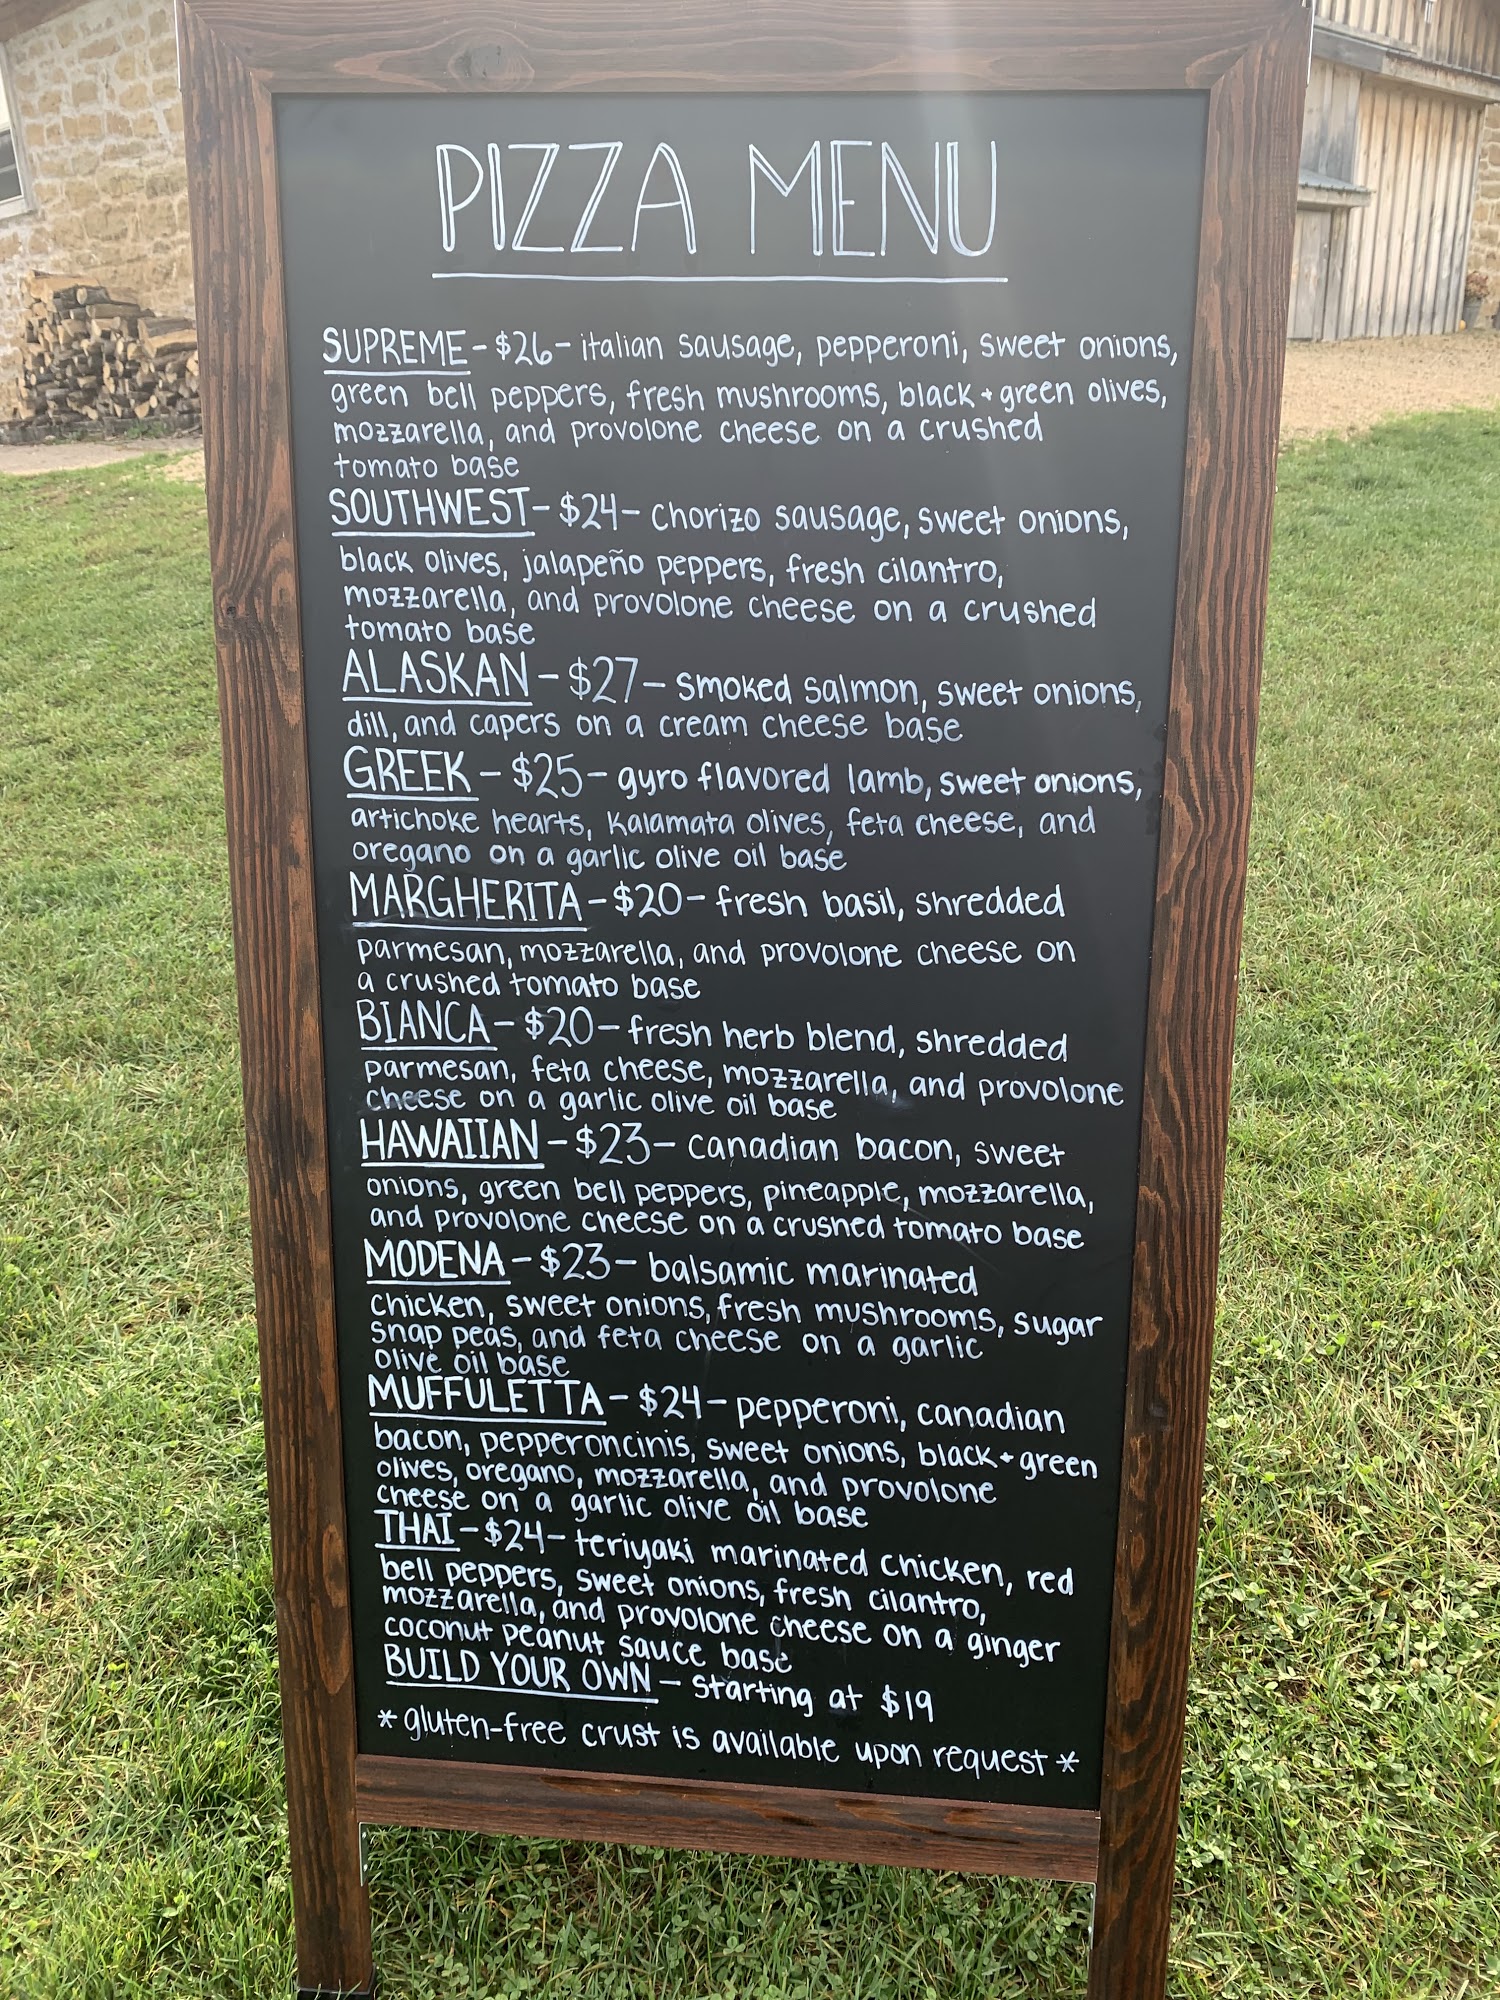 PIZZA MENU
SUPREME - $26 - italian sausage, pepperoni, sweet onions,
green bell peppers, fresh mushrooms, black + green olives,
mozzarella, and provolone cheese on a crushed
tomato base
SOUTHWEST - $24 - chorizo sausage, sweet onions,
black olives, jalapeño peppers, fresh cilantro,
mozzarella, and provolone cheese on a crushed
tomato base
ALASKAN - $27 - smoked salmon, sweet onions,
dill, and capers on a cream cheese base
GREEK - $25 - gyro flavored lamb, sweet onions,
artichoke hearts, kalamata olives, feta cheese, and
oregano on a garlic olive oil base
MARGHERITA - $20 - fresh basil, shredded
parmesan, mozzarella, and provolone cheese on
a crushed tomato base
BIANCA - $20 - fresh herb blend, shredded
parmesan, feta cheese, mozzarella, and provolone
cheese on a garlic olive oil base
HAWAIIAN - $23 - canadian bacon, sweet
onions, green bell peppers, pineapple, mozzarella,
and provolone cheese on a crushed tomato base
MODENA - $23 - balsamic marinated
chicken, sweet onions, fresh mushrooms, sugar
snap peas, and feta cheese on a garlic
olive oil base
MUFFULETTA - $24 - pepperoni, canadian
bacon, pepperoncinis, sweet onions, black + green
olives, oregano, mozzarella, and provolone
cheese on a garlic olive oil base
THAI - $24 - teriyaki marinated chicken, red
bell peppers, sweet onions, fresh cilantro,
mozzarella, and provolone cheese on a ginger
coconut peanut sauce base
BUILD YOUR OWN - starting at $19
* gluten-free crust is available upon request *